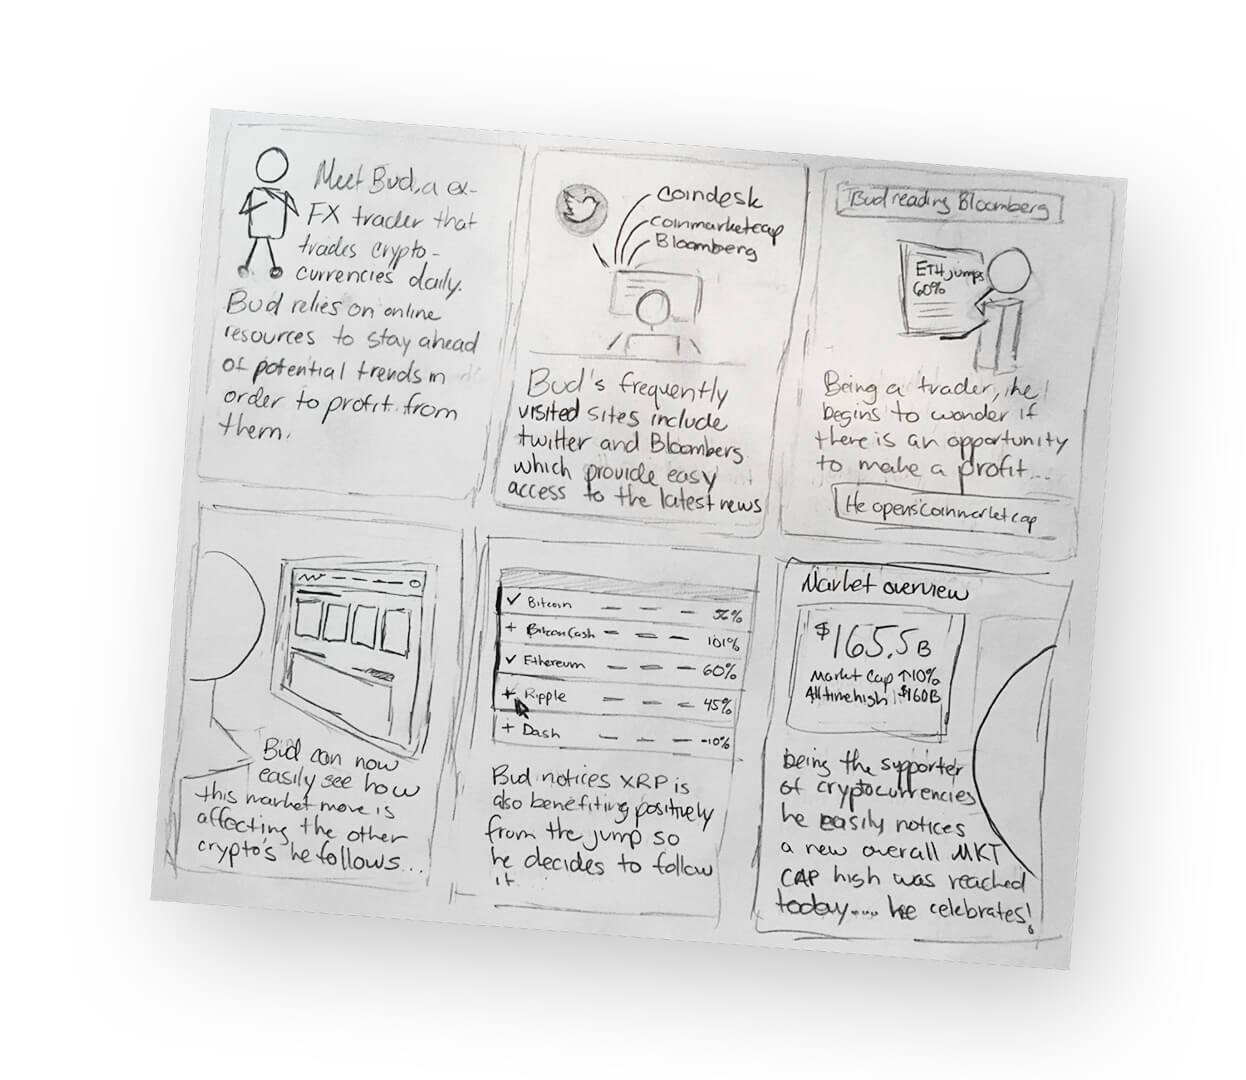 Meet Bud, a ex-
FX trader that
trades crypto-
currencies daily.
Bud relies on online
resources to stay ahead
of potential trends in
order to profit from
them.
coindesk
coinmarketcap
Bloomberg
Bud's frequently
visited sites include
twitter and Bloomberg
which provide easy
access to the latest news
Bud reading Bloomberg
ETH jumps
60%
Being a trader, he
begins to wonder if
there is an opportunity
to make a profit...
He opens coinmarketcap
Bud can now
easily see how
this market move is
affecting the other
crypto's he follows...
✓ Bitcoin — — — 56%
+ BitcoinCash — — — 101%
✓ Ethereum — — — 60%
+ Ripple — — — 45%
+ Dash — — — -10%
Bud notices XRP is
also benefiting positively
from the jump so
he decides to follow
it
Market overview
$165.5B
Market Cap ↑10%
All time high $160B
being the supporter
of cryptocurrencies
he easily notices
a new overall MKT
CAP high was reached
today.... he celebrates!